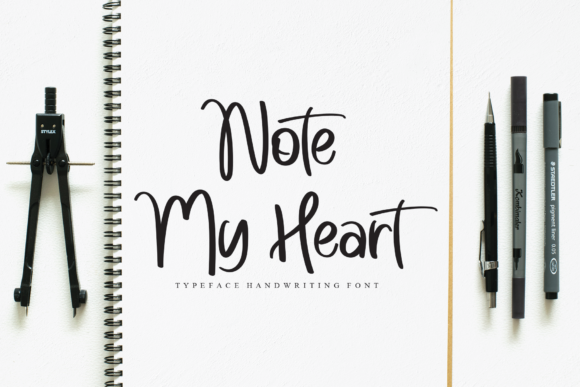 Note
My Heart
TYPEFACE HANDWRITING FONT
STYLEX
STAEDTLER
pigment liner 0.05